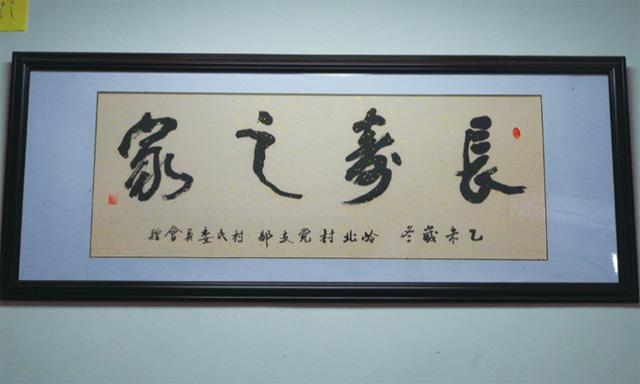 長壽之家
乙未歲冬 岭北村党支部 村民委員會贈